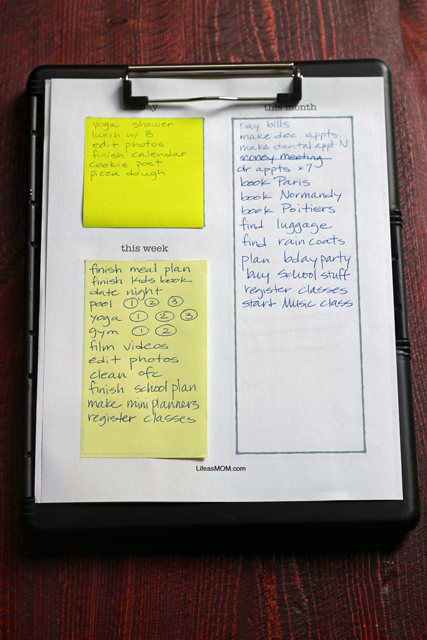 yoga shower
lunch w/ B
edit photos
finish calendar
cookie post
pizza dough
this week
finish meal plan
finish kids book
date night
pool 1 2 3
yoga 1 2 3
gym 1 2
film videos
edit photos
clean ofc
finish school plan
make mini planners
register classes
this month
pay bills
make doc appts
make dental appt N
money meeting
dr appts x7
book Paris
book Normandy
book Poitiers
find luggage
find raincoats
plan bday party
buy school stuff
register classes
start Music class
LifeasMOM.com